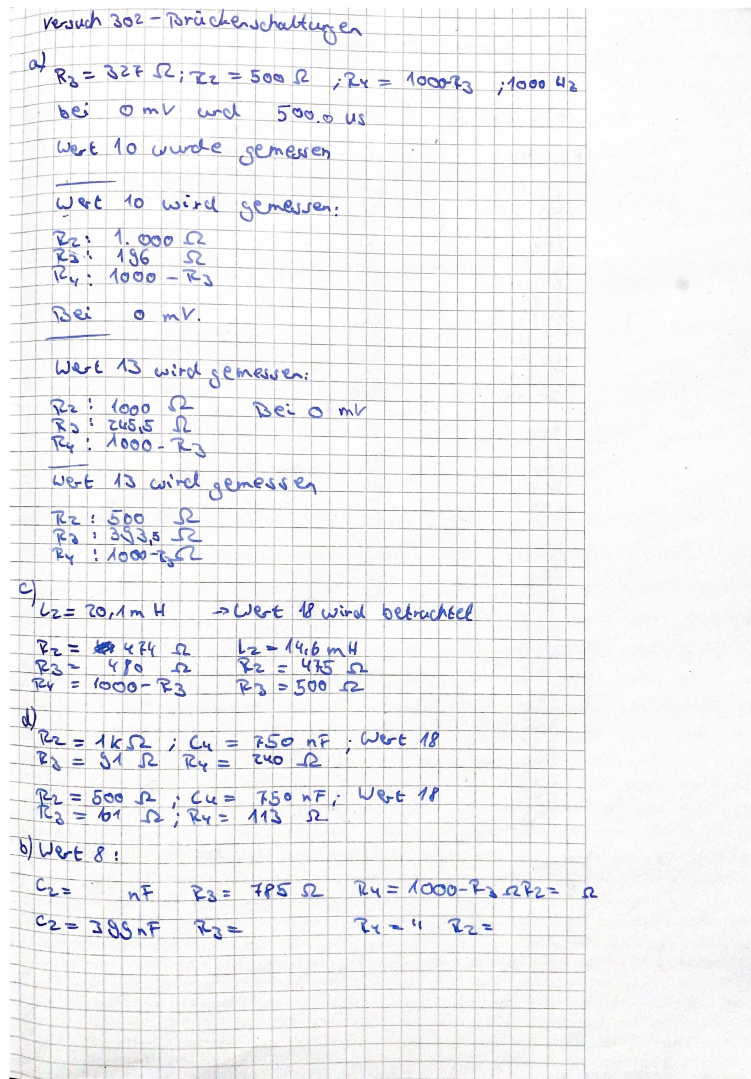 Versuch 302 - Brückenschaltungen
a) R3 = 327 Ω ; R2 = 500 Ω ; R4 = 1000-R3 ; 1000 Hz
bei 0 mV und 500.0 us
Wert 10 wurde gemessen
Wert 10 wird gemessen:
R2: 1.000 Ω
R3: 196 Ω
R4: 1000 - R3
Bei 0 mV.
Wert 13 wird gemessen:
R2 : 1000 Ω Bei 0 mV
R3 : 245,5 Ω
R4 : 1000 - R3
Wert 13 wird gemessen
R2 : 500 Ω
R3 : 393,5 Ω
R4 : 1000-R3 Ω
c)
L2 = 20,1 mH -> Wert 18 wird betrachtet
R2 = 474 Ω L2 = 14,6 mH
R3 = 480 Ω R2 = 475 Ω
R4 = 1000 - R3 R3 = 500 Ω
d)
R2 = 1kΩ ; C4 = 750 nF ; Wert 18
R3 = 91 Ω R4 = 240 Ω
R2 = 500 Ω ; C4 = 750 nF ; Wert 18
R3 = 101 Ω ; R4 = 113 Ω
b) Wert 8 :
C2 = nF R3 = 785 Ω R4 = 1000-R3 Ω R2 = Ω
C2 = 399 nF R3 = R4 = " R2 =